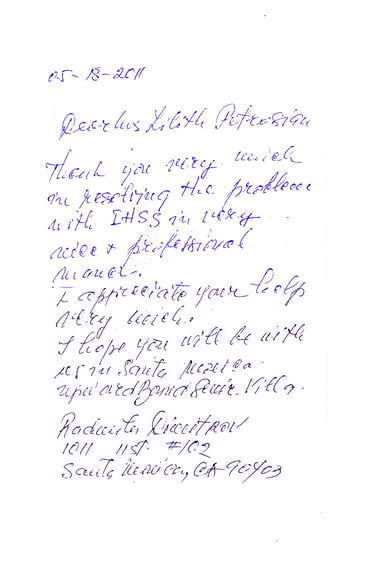 05-18-2011
Dear Ms Lilith Petrosian
Thank you very much
in resolving the problem
with IHSS in very
nice & professional
maner.
I appreciate your help
very much.
I hope you will be with
us in Santa Monica
upward Bound Senior Villa.
Radmila Dimitrov
1011 11st. #102
Santa Monica, CA 90403